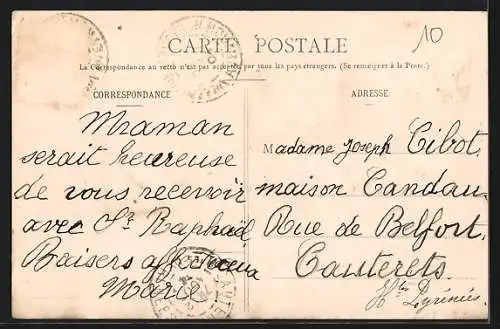 10
CARTE POSTALE
La Correspondance au recto n'est pas acceptée par tous les pays étrangers. (Se renseigner à la Poste.)
CORRESPONDANCE
Maman
serait heureuse
de vous recevoir
avec Sr Raphaël
Baisers affectueux
Marc
ADRESSE
Madame Joseph Cibot
maison Candau
Rue de Belfort
Cauterets
Htes Pyrénées